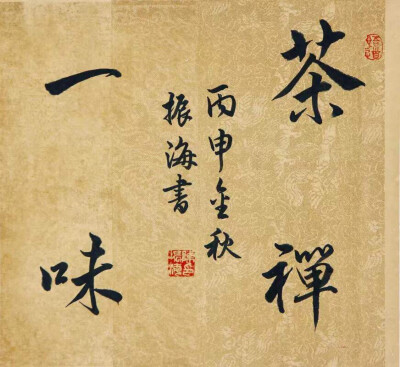 茶禪
丙申金秋
振海書
一味